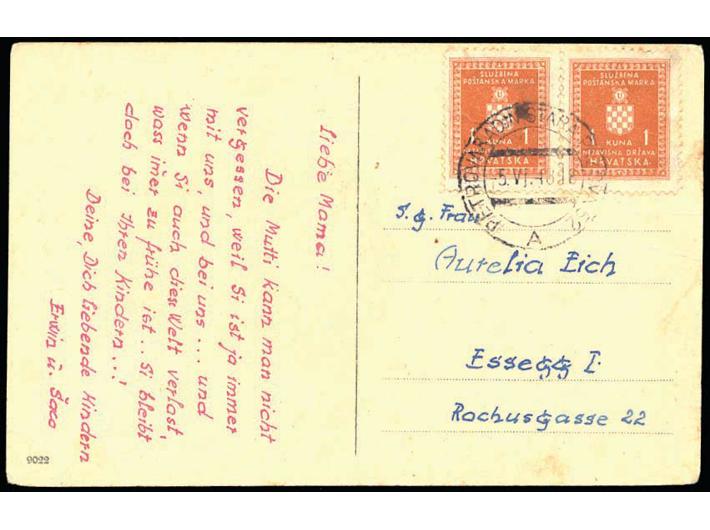 Liebe Mama!
Die Mutti kann man nicht
vergessen, weil Si ist ja immer
mit uns und bei uns... und
wenn Si auch diese Welt verlast,
wass imer zu frühe ist.. Si bleibt
doch bei Ihren Kindern...!
Deine, Dich liebende Kindern
Erwin u. Saso
9022
SLUŽBENA
POŠTANSKA MARKA
U
1 1
KUNA
NEZAVISNA DRŽAVA
HRVATSKA
SLUŽBENA
POŠTANSKA MARKA
U
1 1
KUNA
NEZAVISNA DRŽAVA
HRVATSKA
PETROVARADIN
A
S. g. Frau
Aurelia Eich
Essegg I.
Rochusgasse 22